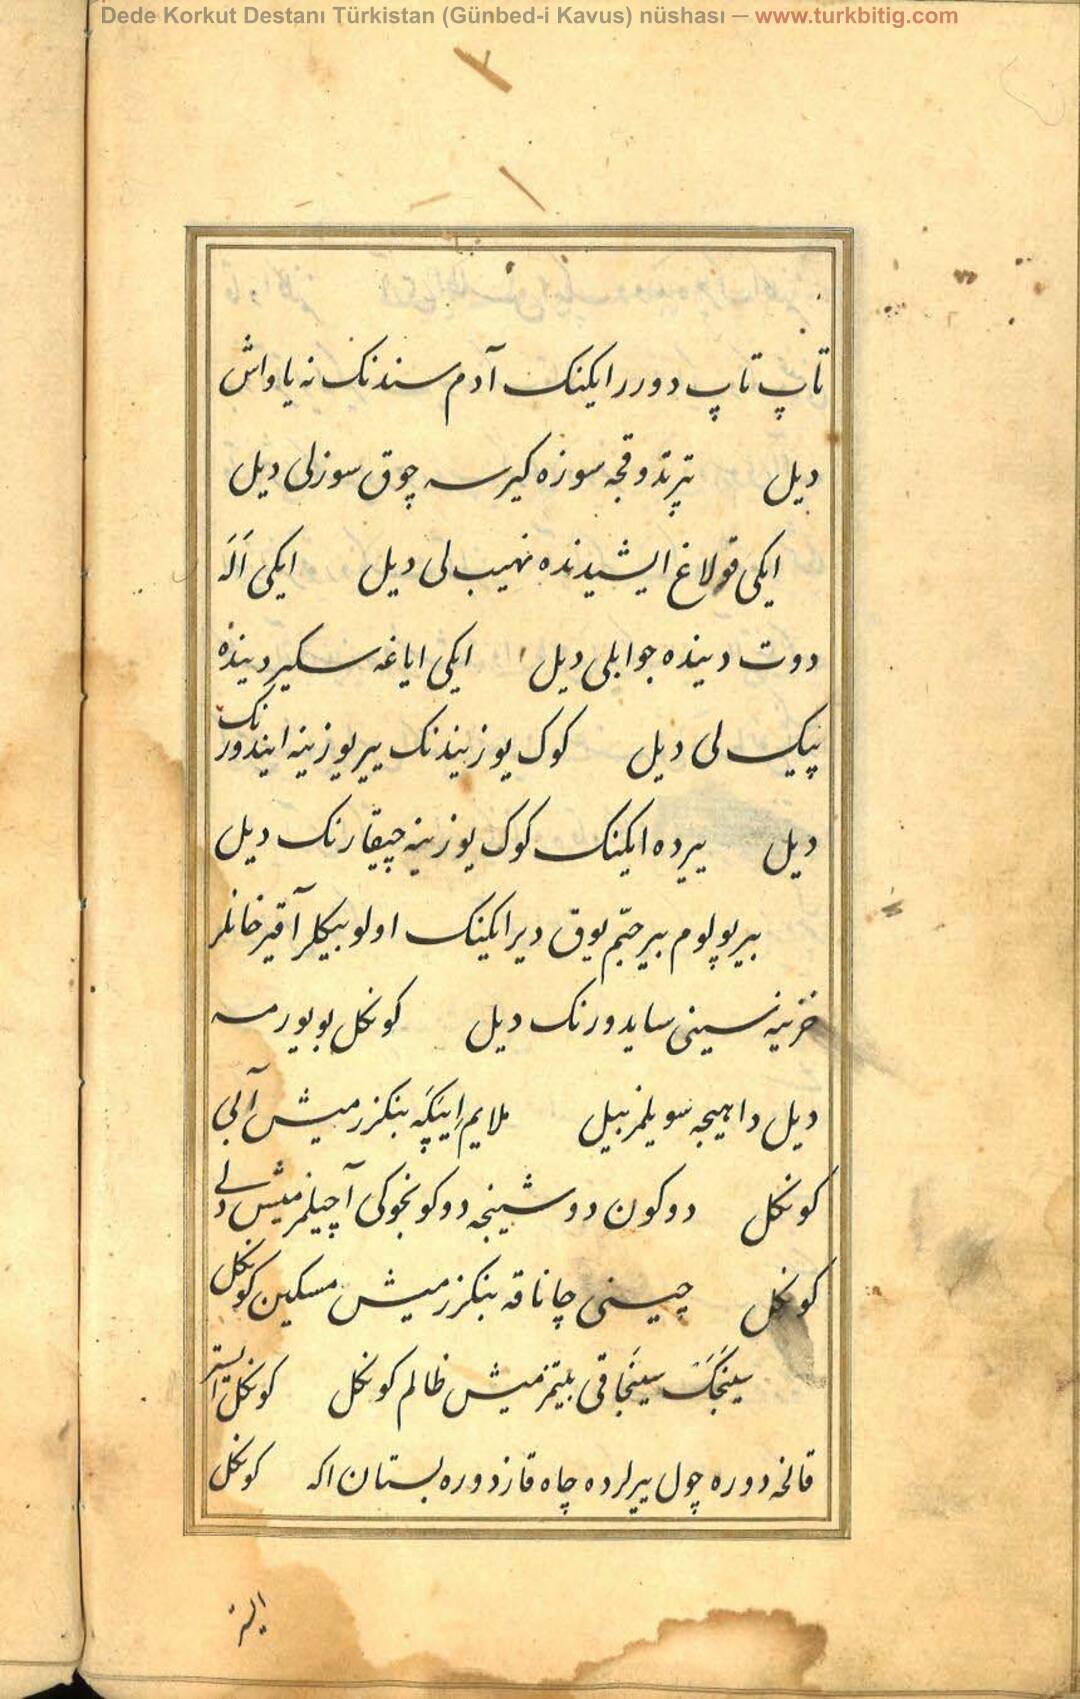 Dede Korkut Destanı Türkistan (Günbed-i Kavus) nüshası — www.turkbitig.com
تاپ تاپ دورر ایکنک آدم سندنک نه یاواش
دیل تیرتدوقجه سوزه کیرسه چوق سوزلی دیل
ایکی قولاغ ایشیدنده نهیب لی دیل ایکی اَلَه
دوت دینده جوابلی دیل ایکی ایاغه سکیر دینده
پیک لی دیل کوک یوزیندنک ییر یوزینه ایندورنک
دیل ییرده ایکنک کوک یوزینه چیقارنک دیل
بیر پولوم بیر حبّم یوق دیر ایکنک اولو بیکلر آقیر خانلر
خزینه سینی سایدورنک دیل کونکل بویورمسه
دیل داهیجه سویلمز بیل ملایم اِیپَکِه بنکزرمیش آلی
کونکل دوکون دوشینجه دوکونجوکی آچیلمزمیش دلی
کونکل چیسنی چاناقه بنکزرمیش مسکین کونکل
سینجَکَ سینجاقی بیتمزمیش ظالم کونکل کونکل ایستر
قالخه دوره چول ییرلرده چاه قازدوره بستان اکه کونکل